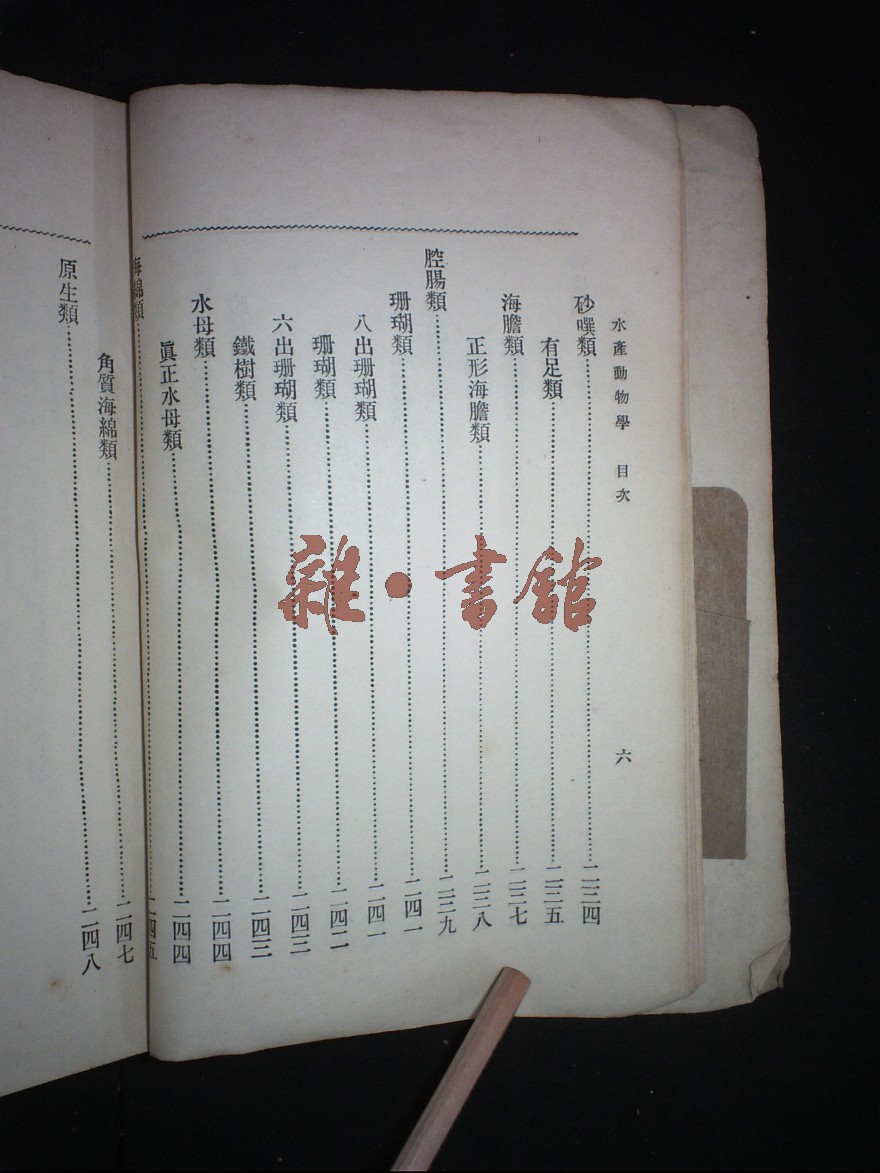 水產動物學　目次　六
砂噀類……二三四
有足類……二三五
海膽類……二三七
正形海膽類……二三八
腔腸類……二三九
珊瑚類……二四一
八出珊瑚類……二四一
珊瑚類……二四二
六出珊瑚類……二四三
鐵樹類……二四三
水母類……二四四
眞正水母類……二四四
海綿類……二四五
角質海綿類……二四七
原生類……二四八
雜·書館